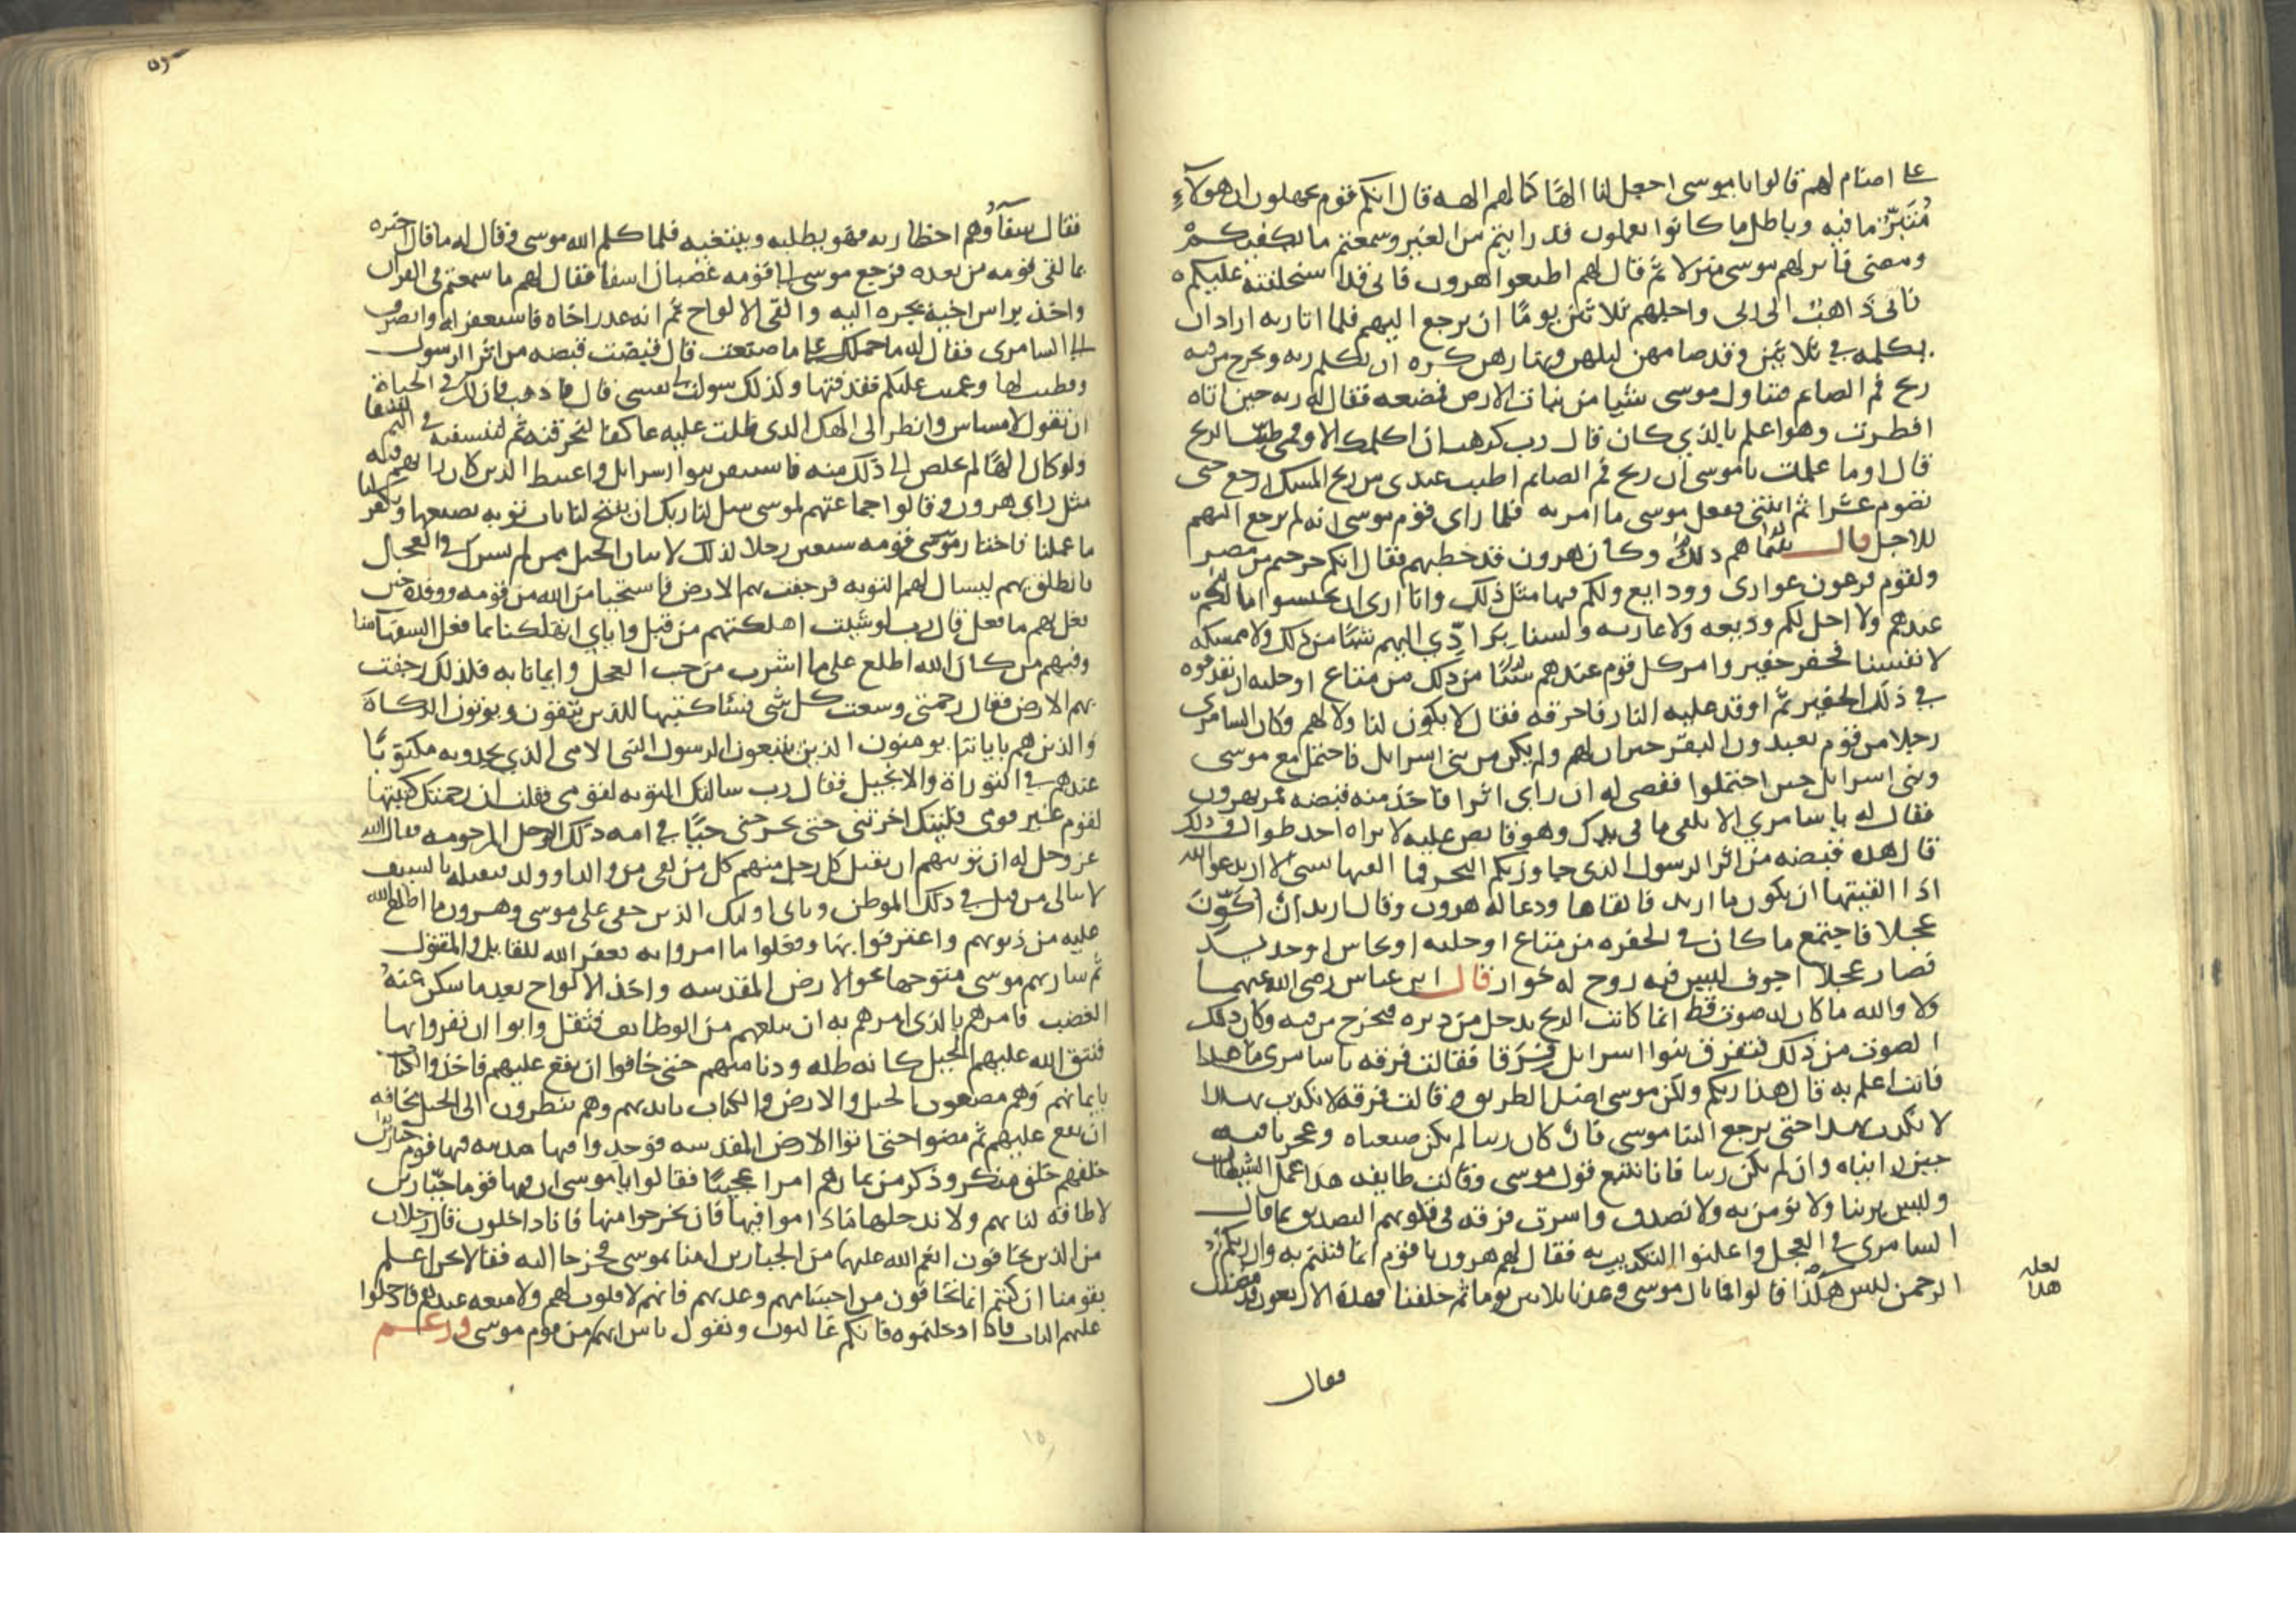 على اصنام لهم قالوا يا موسى اجعل لنا الها كما لهم الهه قال انكم قوم تجهلون ان هولاء
متبر ما فيه وباطل ما كانوا يعملون قد رايتم من العبر وسمعتم ما يكفيكم
ومضى فانزلهم موسى منزلا ثم قال لهم اطيعوا هرون فانى قد استخلفته عليكم
فانى ذاهب الى ربى واجلهم ثلاثين يوما ان يرجع اليهم فلما اتا ربه اراد ان
يكلمه في ثلاثين وقد صامهن ليلهن ونهارهن كره ان يكلم ربه ويخرج من فيه
ريح فم الصايم فتناول موسى شيا من نبات الارض فمضغه فقال له ربه حين اتاه
افطرت وهو اعلم بالذي كان قال رب كرهت ان اكلمك الا وفمى طيب الريح
قال اوما علمت يا موسى ان ريح فم الصايم اطيب عندى من ريح المسك ارجع حتى
تصوم عشرا ثم ايتنى ففعل موسى ما امر به فلما راى قوم موسى انه لم يرجع اليهم
للاجل قال بينما هم ذلك وكان هرون قد خطبهم فقال انكم خرجتم من مصر
ولقوم فرعون عوارى وودايع ولكم فيها مثل ذلك وانا ارى ان تحتسبوا ما لكم
عندهم ولا احل لكم وديعه ولا عاريه ولسنا برادي اليهم شيا من ذلك ولا ممسكيه
لانفسنا فحفر حفير وامر كل قوم عندهم شيا من ذلك من متاع او حليه ان يقذفوه
في ذلك الحفير ثم اوقد عليه النار فاحرقه فقال لا يكون لنا ولا لهم وكان السامرى
رجلا من قوم يعبدون البقر جيران لهم ولم يكن من بنى اسرايل فاحتمل مع موسى
وبنى اسرايل حين احتملوا فقضى له ان راى اثرا فاخذ منه قبضه فمر بهرون
فقال له يا سامري الا تلقى ما في يدك وهو قابض عليه لا يراه احد طوال ذلك
قال هذه قبضه من اثر الرسول الذى جاوز بكم البحر فما القيها لشى الا ان يدعوا الله
اذا القيتها ان يكون ما اريد فالقاها ودعا له هرون وقال اريد ان تكون
عجلا فاجتمع ما كان في الحفره من متاع او حليه او نحاس او حديد
فصار عجلا اجوف ليس فيه روح له خوار قال ابن عباس رضى الله عنهما
ولا والله ما كان له صوت قط انما كانت الريح تدخل من دبره فتخرج من فيه وكان ذلك
الصوت من ذلك فتفرق بنوا اسرايل فرقا فقالت فرقه يا سامرى ما هذا
فانت اعلم به قال هذا ربكم ولكن موسى اضل الطريق وقالت فرقه لا نكذب بهذا
لا نكذب بهذا حتى يرجع الينا موسى فان كان ربنا لم نكن ضيعناه وعجزنا فيه
حين راينباه وان لم يكن ربنا فانا نتبع قول موسى وقالت طايفه هذا عمل الشيطان
وليس بربنا ولا نومن به ولا نصدق واسرت فرقه في قلوبهم التصديق بما قال
السامرى في العجل واعلنوا التكذيب به فقال لهم هرون يا قوم انما فتنتم به وان ربكم
الرحمن ليس هكذا قالوا فما بال موسى وعدنا ثلاثين يوما ثم خلفنا فهذه الاربعون قد مضت
لعله
هذا
فقال
فقال سفهاوهم اخطا ربه فهو يطلبه ويبتغيه فلما كلم الله موسى وقال له ما قال اخبره
بما لقى قومه من بعده فرجع موسى الى قومه غضبان اسفا فقال لهم ما سمعتم في القران
واخذ براس اخيه يجره اليه والقى الالواح ثم انه عذر اخاه فاستغفر له وانصرف
الى السامرى فقال له ما حملك على ما صنعت قال قبضت قبضه من اثر الرسول
وفطنت لها وعميت عليكم فقذفتها وكذلك سولت لى نفسى قال فاذهب فان لك في الحياة
ان تقول لا مساس وانظر الى الهك الذى ظلت عليه عاكفا لنحرقنه ثم لننسفنه في اليم نسفا
ولو كان الها لم نخلص الى ذلك منه فاستيقن بنوا اسرايل واغتبط الذين كان رايهم فيه
مثل راى هرون وقالوا جماعتهم لموسى سل لنا ربك ان يفتح لنا باب توبه نصنعها وتكفر لنا
ما عملنا فاختار موسى قومه سبعين رجلا لذلك لاتيان الجبل ممن لم يشرك في العجل
فانطلق بهم ليسال لهم التوبه فرجفت بهم الارض فاستحيا من الله من قومه ووفده حين
فعل بهم ما فعل قال رب لو شيت اهلكتهم من قبل واياي اتهلكنا بما فعل السفها منا
وفيهم من كان الله اطلع على ما اشرب من حب العجل وايمانا به فلذلك رجفت
بهم الارض فقال رحمتى وسعت كل شى فساكتبها للذين يتقون ويوتون الزكاة
والذين هم باياتنا يومنون الذين يتبعون الرسول النبى الامى الذي يجدونه مكتوبا
عندهم في التوراة والانجيل فقال رب سالتك التوبه لقومى فقلت ان رحمتك كتبتها
لقوم غير قومى فليتك اخرتنى حتى تخرجنى حيا في امه ذلك الرجل المرحومه فقال الله
عز وجل له ان توبتهم ان يقتل كل رجل منهم كل من لقى من والد او ولد فيقتله بالسيف
لا يبالى من قتل في ذلك الموطن وتاب اوليك الذين خفى على موسى وهرون ما اطلع الله
عليه من ذنوبهم واعترفوا بها وفعلوا ما امروا به فغفر الله للقاتل والمقتول
ثم سار بهم موسى متوجها نحو الارض المقدسه واخذ الالواح بعد ما سكن عنه
الغضب فامرهم بالذى امرهم به ان يبلغهم من الوظايف فثقل وابوا ان يقروا بها
فنتق الله عليهم الجبل كانه ظله ودنا منهم حتى خافوا ان يقع عليهم فاخذوا الكتاب
بايمانهم وهم مصغون الجبل والارض والكتاب بايديهم وهم ينظرون الى الجبل مخافه
ان يقع عليهم ثم مضوا حتى اتوا الارض المقدسه فوجدوا فيها مدينه فيها قوم جبارين
خلقهم خلق منكر وذكر من ثمارهم امرا عجيبا فقالوا يا موسى ان فيها قوما جبارين
لا طاقه لنا بهم ولا ندخلها ما داموا فيها فان يخرجوا منها فانا داخلون قال رجلان
من الذين يخافون انعم الله عليهما من الجبارين امنا بموسى فخرجا اليه فقالا نحن اعلم
بقومنا ان كنتم انما تخافون من اجسامهم وعددهم فانهم لا قلوب لهم ولا منعه عندهم فادخلوا
عليهم الباب فاذا ادخلتموه فانكم غالبون ويقول ناس انهم من قوم موسى وزعم